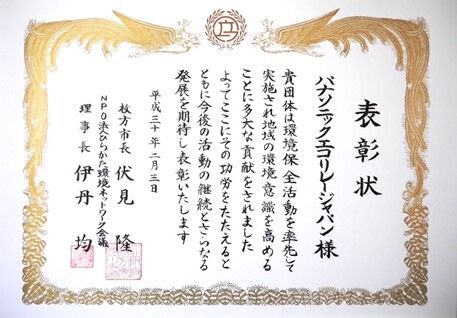 表彰状
パナソニックエコリレージャパン様
貴団体は環境保全活動を率先して
実施され地域の環境意識を高める
ことに多大な貢献をされました
よってここにその功労をたたえると
ともに今後の活動の継続とさらなる
発展を期待し表彰いたします
平成三十年二月三日
枚方市長 伏見 隆
NPO法人ひらかた環境ネットワーク会議
理事長 伊丹 均